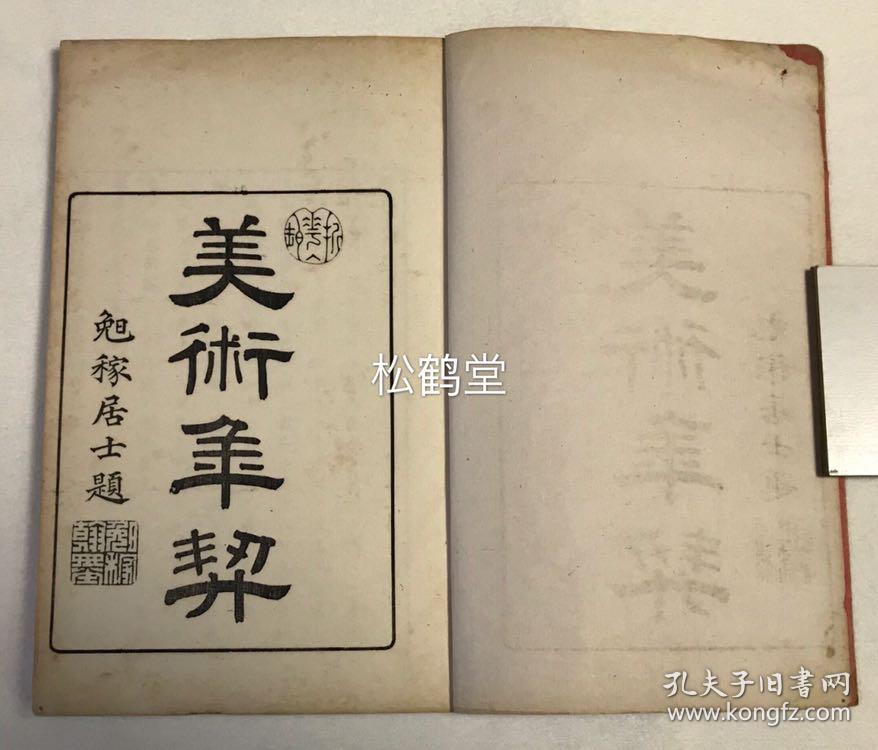 美術年契
勉稼居士題
松鹤堂
孔夫子旧书网
www.kongfz.com